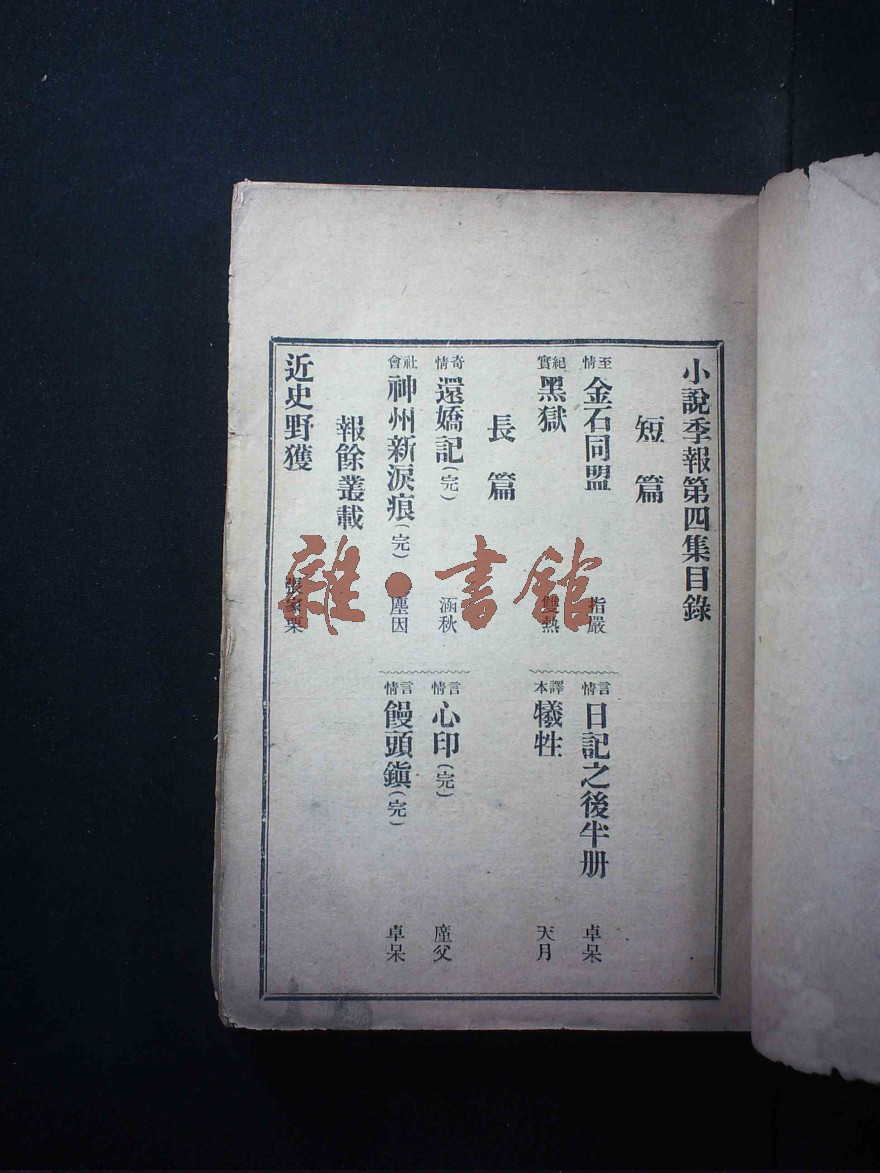 小說季報第四集目錄
短篇
至情 金石同盟 指嚴
言情 日記之後半册 卓呆
紀實 黑獄 雙熱
譯本 犧牲 天月
長篇
奇情 還嬌記(完) 涵秋
言情 心印(完) 廑父
社會 神州新淚痕(完) 塵因
言情 饅頭鎭(完) 卓呆
報餘叢載
近史野獲 張
雜·書館